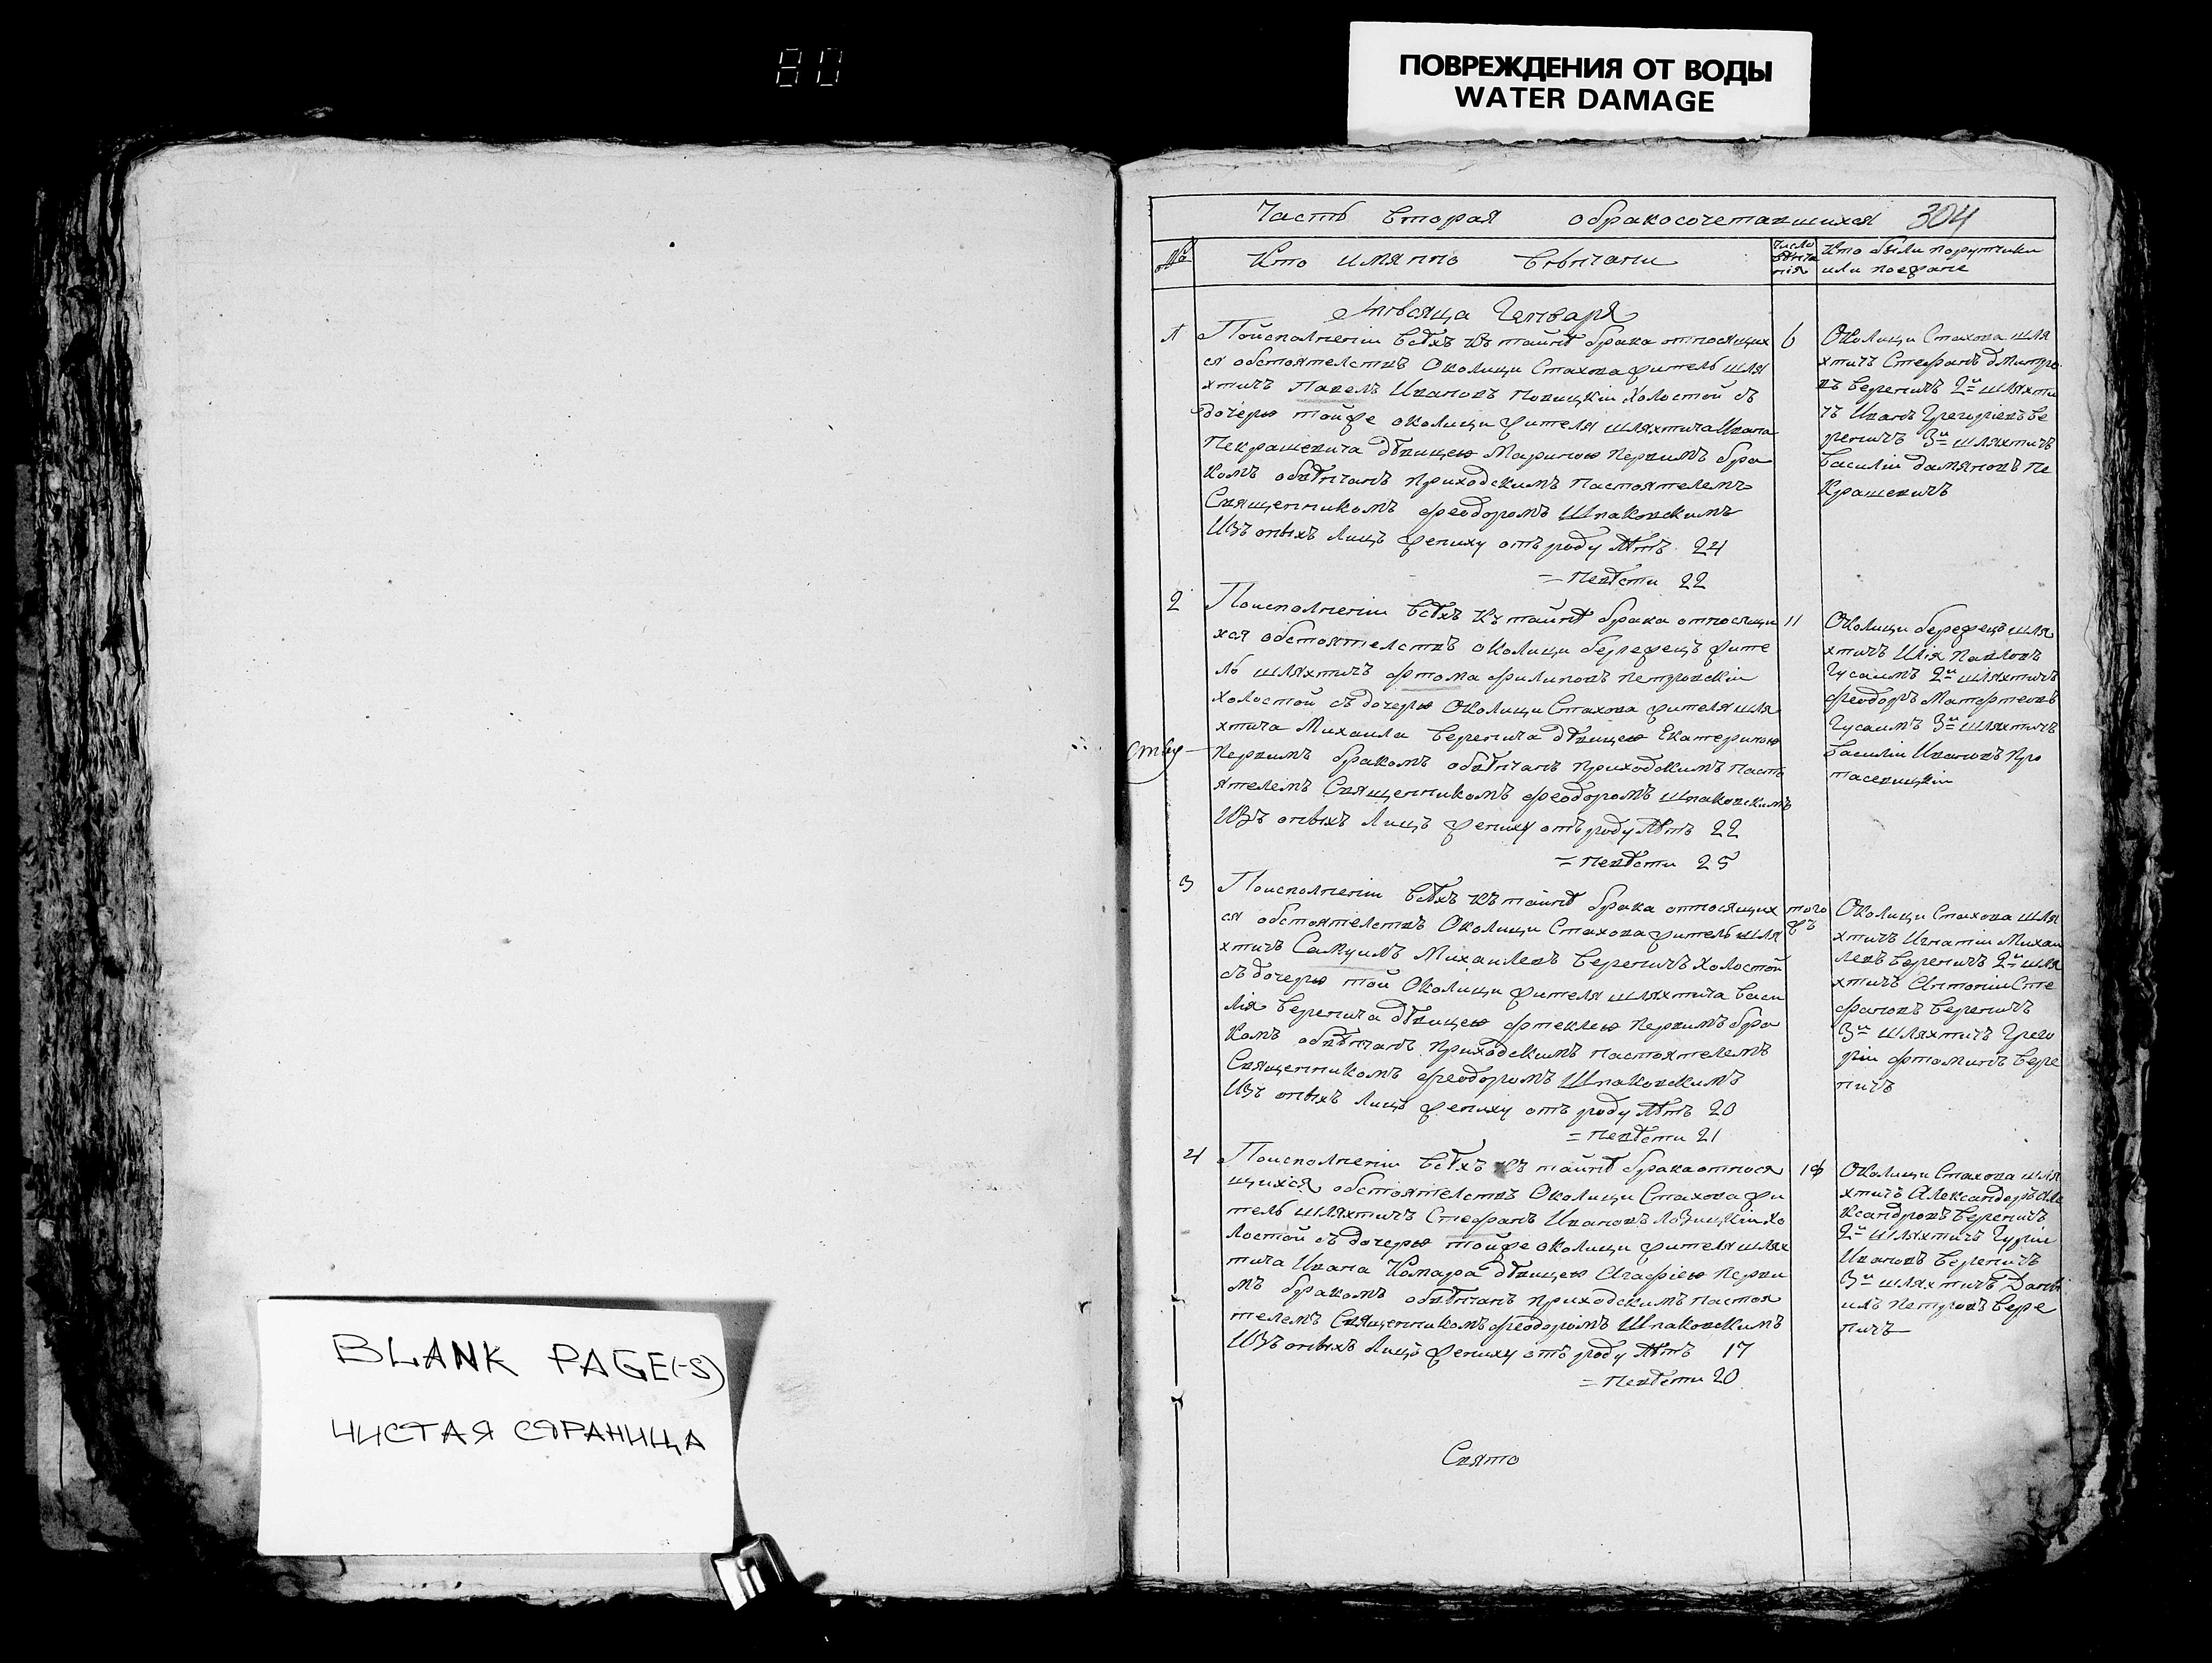 80
ПОВРЕЖДЕНИЯ ОТ ВОДЫ
WATER DAMAGE
BLANK PAGE(-S)
ЧИСТАЯ СТРАНИЦА
Часть вторая о бракосочетавшихся 304
№ Кто имянно Вѣнчани
число вѣнчания
Кто были порутчики
или поезжане
Мѣсяца Генваря
1 Поисполнении всѣхъ къ тайнѣ брака относящих
ся обстоятелствъ Околици Стахова житель шля
хтичъ Павелъ Ивановъ Новицкiи Холостой съ
дочерю тойже околици жителя шляхтича Ивана
Некрашевича дѣвицею Мариною первимъ бра
комъ обвѣнчанъ приходскимъ настоятелемъ
Священникомъ Феодоромъ Шпаковскимъ
Изъ оныхъ лицъ жениху отъ роду лѣтъ 24
= невѣсти 22
6
Околици Стахова шля
хтичъ Стефанъ Дмитро
въ Вереничъ 2й шляхти
чъ Иванъ Григориевъ Ве
реничъ 3й шляхтичъ
Василiи Дамяновъ Не
крашевичъ
2 Поисполнении всѣхъ къ тайнѣ брака относящи
хся обстоятелствъ околици бережецъ жите
ль шляхтичъ Фтома Филиповъ Петровскiи
холостой съ дочерю Околици Стахова жителя шля
хтича Михаила Веренича дѣвицею Екатериною
первимъ бракомъ обвѣнчанъ приходскимъ насто
ятелемъ Священникомъ Феодоромъ Шпаковскимъ
Изъ оныхъ лицъ жениху отъ роду лѣтъ 22
= невѣсти 25
11
Околици бережецъ шля
хтичъ Илiя Павловъ
Гусаимъ 2й шляхтичъ
Феодоръ Матфтеевъ
Гусаимъ 3й шляхтичъ
Василiи Ивановъ Про
тасевицкiи
3 Поисполнении всѣхъ къ тайнѣ брака относящих
ся обстоятелствъ Околици Стахова житель шля
хтичъ Самуилъ Михаилевъ Вереничъ Холостой
съ дочерю той Околици жителя шляхтича Васи
лiя Веренича дѣвицею Фтеклею первимъ бра
комъ обвѣнчанъ приходскимъ настоятелемъ
Священникомъ Феодоромъ Шпаковскимъ
Изъ оныхъ лицъ жениху отъ роду лѣтъ 20
= невѣсти 21
того
жъ
Околици Стахова шля
хтичъ Игнатiи Михаи
левъ Вереничъ 2й шля
хтичъ Антонiи Сте
фановъ Вереничъ
3й шляхтичъ Григо
рiи Фтоминъ Вере
ничъ
4 Поисполнении всѣхъ къ тайнѣ брака относя
щихся обстоятелствъ Околици Стахова жи
тель шляхтичъ Стефанъ Ивановъ Лозицкiи хо
лостой съ дочерю тойже околици жителя шлях
тича Ивана Комара дѣвицею Агафiею Перви
мъ бракомъ обвѣнчанъ приходскимъ настоя
телемъ Священникомъ Феодоромъ Шпаковскимъ
Изъ оныхъ лицъ жениху отъ роду лѣтъ 17
= невѣсти 20
Околици Стахова шля
хтичъ Александоръ Але
ксандровъ Вереничъ
2й шляхтичъ
Ивановъ Вереничъ
3й шляхтичъ Дани
илъ Петровъ Вере
ничъ
Свято